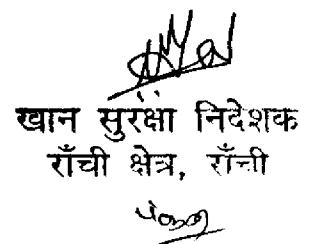 खान सुरक्षा निदेशक
राँची क्षेत्र, राँची